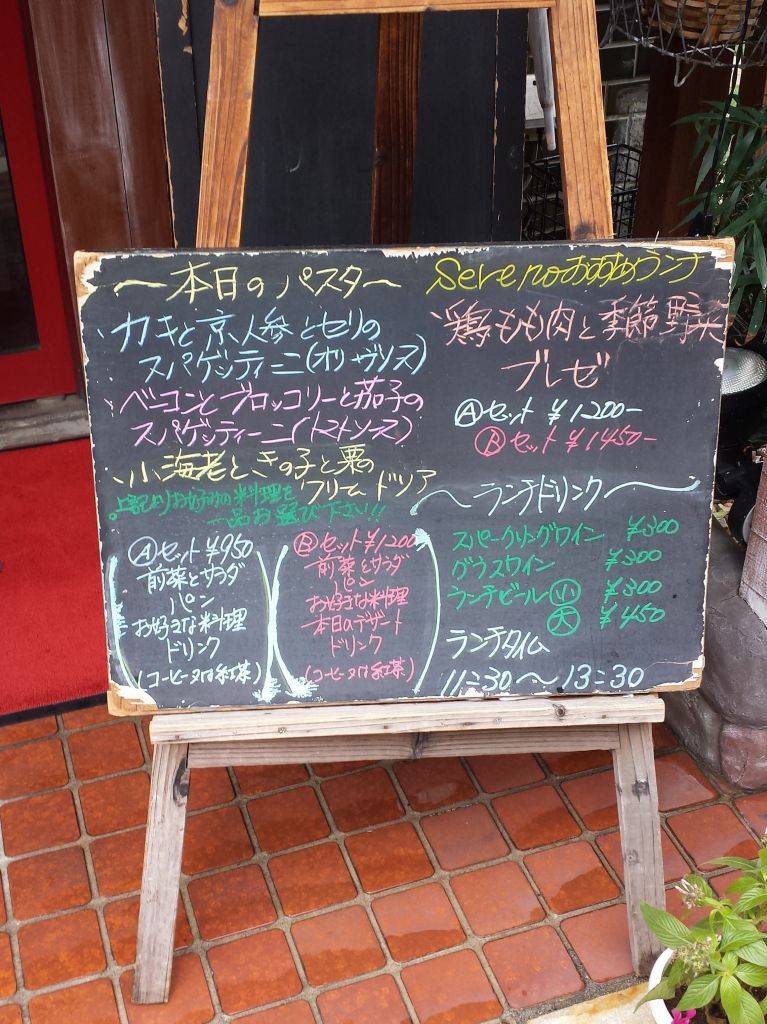 〜本日のパスタ〜
カキと京人参とセリの
スパゲッティーニ(オリーヴソース)
ベーコンとブロッコリーと茄子の
スパゲッティーニ(トマトソース)
小海老ときの子と栗の
クリームドリア
上記よりお好みの料理を
一品お選び下さい!!
Ⓐセット ¥950
前菜とサラダ
パン
お好きな料理
ドリンク
(コーヒー又は紅茶)
Ⓑセット ¥1200
前菜とサラダ
パン
お好きな料理
本日のデザート
ドリンク
(コーヒー又は紅茶)
Serenoおすすめランチ
鶏もも肉と季節野菜
ブレゼ
Ⓐセット ¥1200-
Ⓑセット ¥1450-
〜ランチドリンク〜
スパークリングワイン ¥300
グラスワイン ¥300
ランチビール 小 ¥300
大 ¥450
ランチタイム
11:30〜13:30